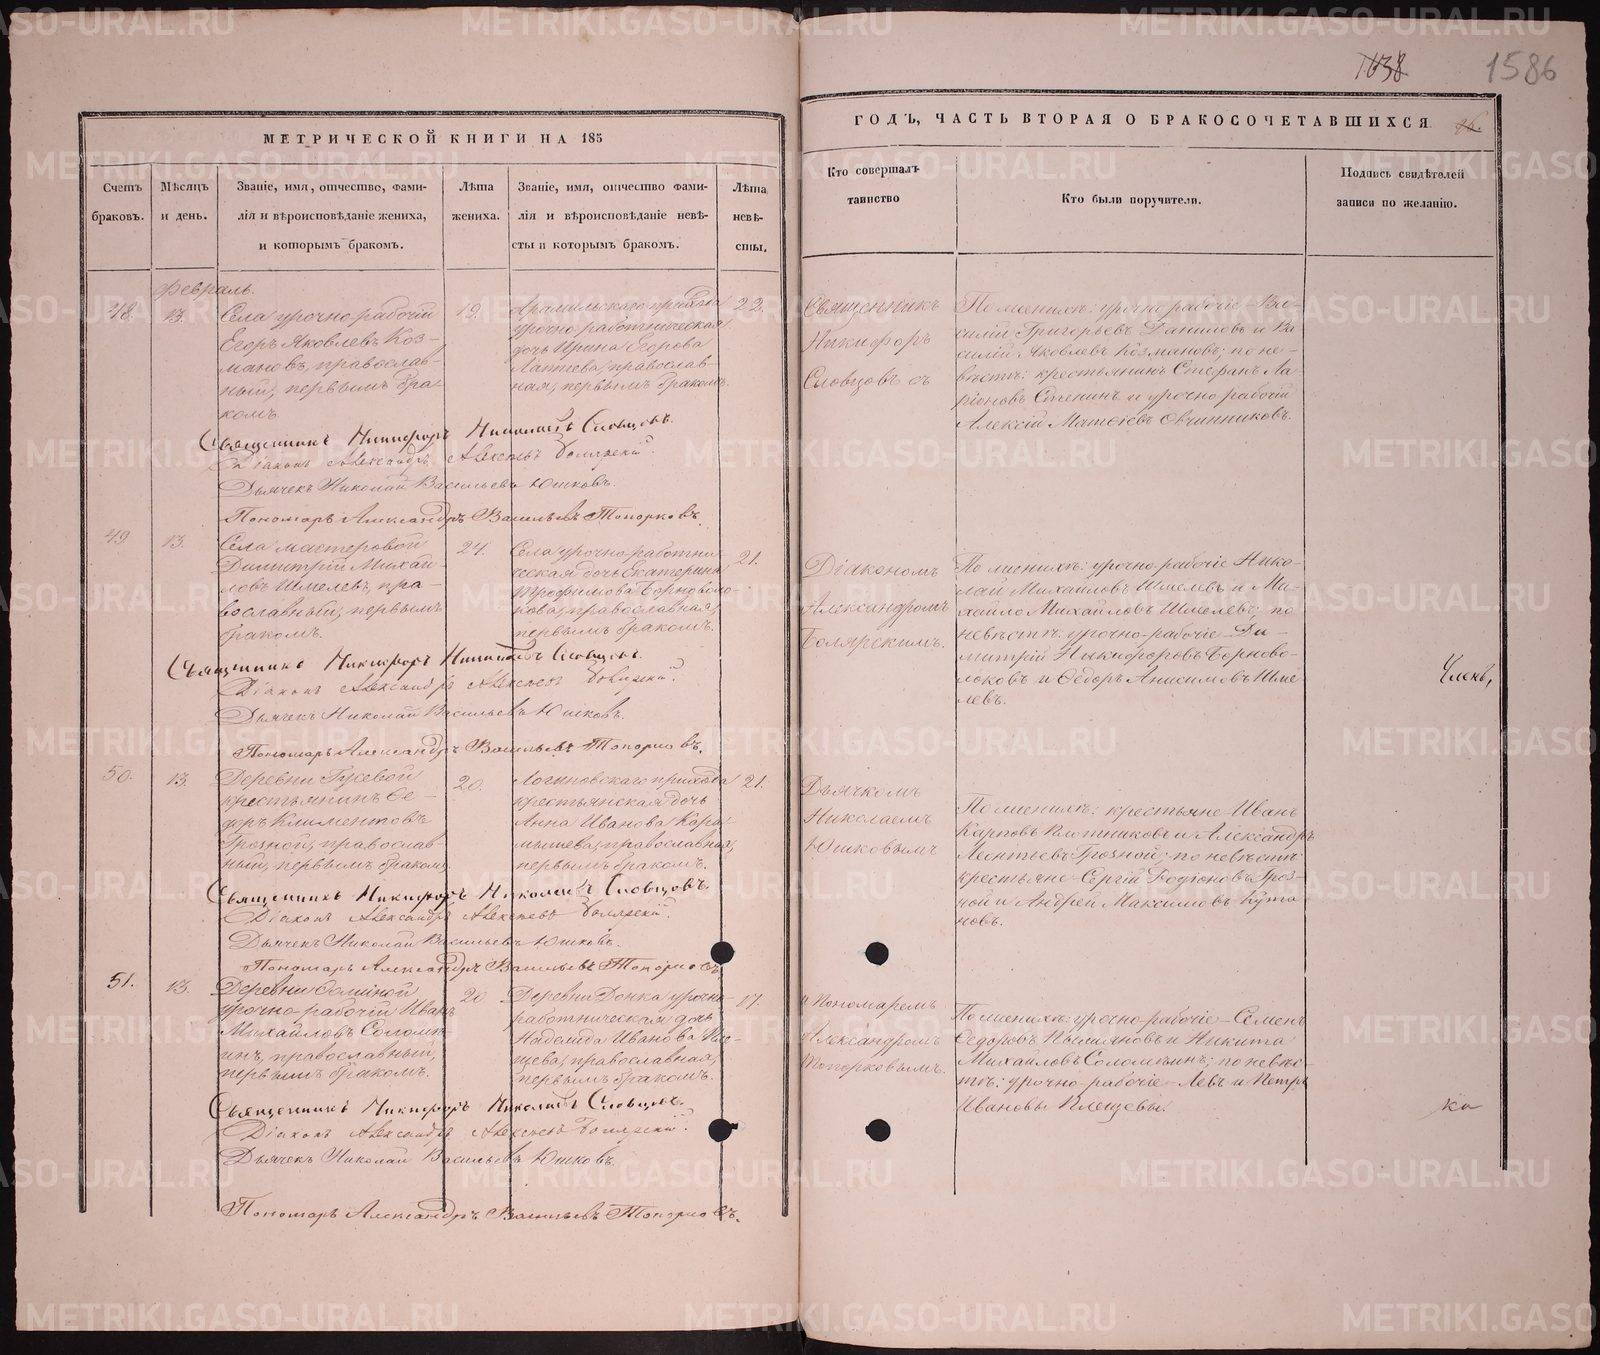 1638
1586
МЕТРИЧЕСКОЙ КНИГИ НА 185
ГОДЪ, ЧАСТЬ ВТОРАЯ О БРАКОСОЧЕТАВШИХСЯ
Счетъ браковъ.
Мѣсяцъ и день.
Званіе, имя, отчество, фами-
лія и вѣроисповѣданіе жениха,
и которымъ бракомъ.
Лѣта
жениха.
Званіе, имя, отчество фами-
лія и вѣроисповѣданіе невѣ-
сты и которымъ бракомъ.
Лѣта
невѣ-
сты.
Кто совершалъ
таинство
Кто были поручители.
Подпись свидѣтелей
записи по желанію.
Февраль.
48.
13.
Села урочно рабочій
Егоръ Яковлевъ Коз-
мановъ, православ-
ный, первымъ бра-
комъ.
19.
Арамильскаго прихода
урочно работническая
дочь Ирина Егорова
Лаптева, православ-
ная, первымъ бракомъ.
22.
Священникъ
Никифоръ
Словцовъ съ
По женихѣ: урочно рабочіе Ва-
силій Григорьевъ Даниловъ и Ва-
силій Яковлевъ Козмановъ; по не-
вѣстѣ: крестьянинъ Стефанъ Ла-
ріоновъ и урочно рабочій
Алексій Матѳіевъ Овчинниковъ.
Священникъ Никифоръ Николаевъ Словцовъ.
Діаконъ Александръ Алексѣевъ Болярскій.
Дьячекъ Николай Васильевъ Юшковъ.
Пономарь Александръ Васильевъ Топорковъ.
49.
13.
Села мастеровой
Димитрій Михай-
ловъ Шмелевъ, пра-
вославный, первымъ
бракомъ.
24.
Села урочно-работни-
ческая дочь Екатерина
Трофимова Борново-
локова, православная,
первымъ бракомъ.
21.
Діакономъ
Александромъ
Болярскимъ.
По женихѣ: урочно-рабочіе Нико-
лай Михаиловъ Шмелевъ и Ми-
хайло Михаиловъ Шмелевъ; по
невѣстѣ: урочно-рабочіе Ди-
митрій Никифоровъ Борново-
локовъ и Ѳедоръ Анисимовъ Шме-
левъ.
Членъ,
Священникъ Никифоръ Николаевъ Словцовъ.
Діаконъ Александръ Алексѣевъ Болярскій.
Дьячекъ Николай Васильевъ Юшковъ.
Пономарь Александръ Васильевъ Топорковъ.
50.
13.
Деревни Гусевой
крестьянинъ Ѳе-
доръ Климентовъ
Грозной, православ-
ный, первымъ бракомъ.
20.
Логиновскаго прихода
крестьянская дочь
Анна Иванова Кара-
мышева, православная,
первымъ бракомъ.
21.
Дьячкомъ
Николаемъ
Юшковымъ
По женихѣ: крестьяне Иванъ
Карповъ Плотниковъ и Александръ
Леонтьевъ Грозной; по невѣстѣ
крестьяне Сергій Родіоновъ Гроз-
ной и Андрей Максимовъ
новъ.
Священникъ Никифоръ Николаевъ Словцовъ.
Діаконъ Александръ Алексѣевъ Болярскій.
Дьячекъ Николай Васильевъ Юшковъ.
Пономарь Александръ Васильевъ Топорковъ.
51.
13.
Деревни
урочно-рабочій Иванъ
Михайловъ Соломе-
инъ, православный,
первымъ бракомъ.
20
Деревни урочно-
работническая дочь
Надежда Иванова Пле-
щева, православная,
первымъ бракомъ.
17.
и Пономаремъ
Александромъ
Топорковымъ.
По женихѣ: урочно-рабочіе Семенъ
Ѳедоровъ и Никита
Михайловъ Соломеинъ; по невѣс-
тѣ: урочно-рабочіе Левъ и Петръ
Ивановы Плещевы.
ка
Священникъ Никифоръ Николаевъ Словцовъ.
Діаконъ Александръ Алексѣевъ Болярскій.
Дьячекъ Николай Васильевъ Юшковъ.
Пономарь Александръ Васильевъ Топорковъ.
METRIKI.GASO-URAL.RU